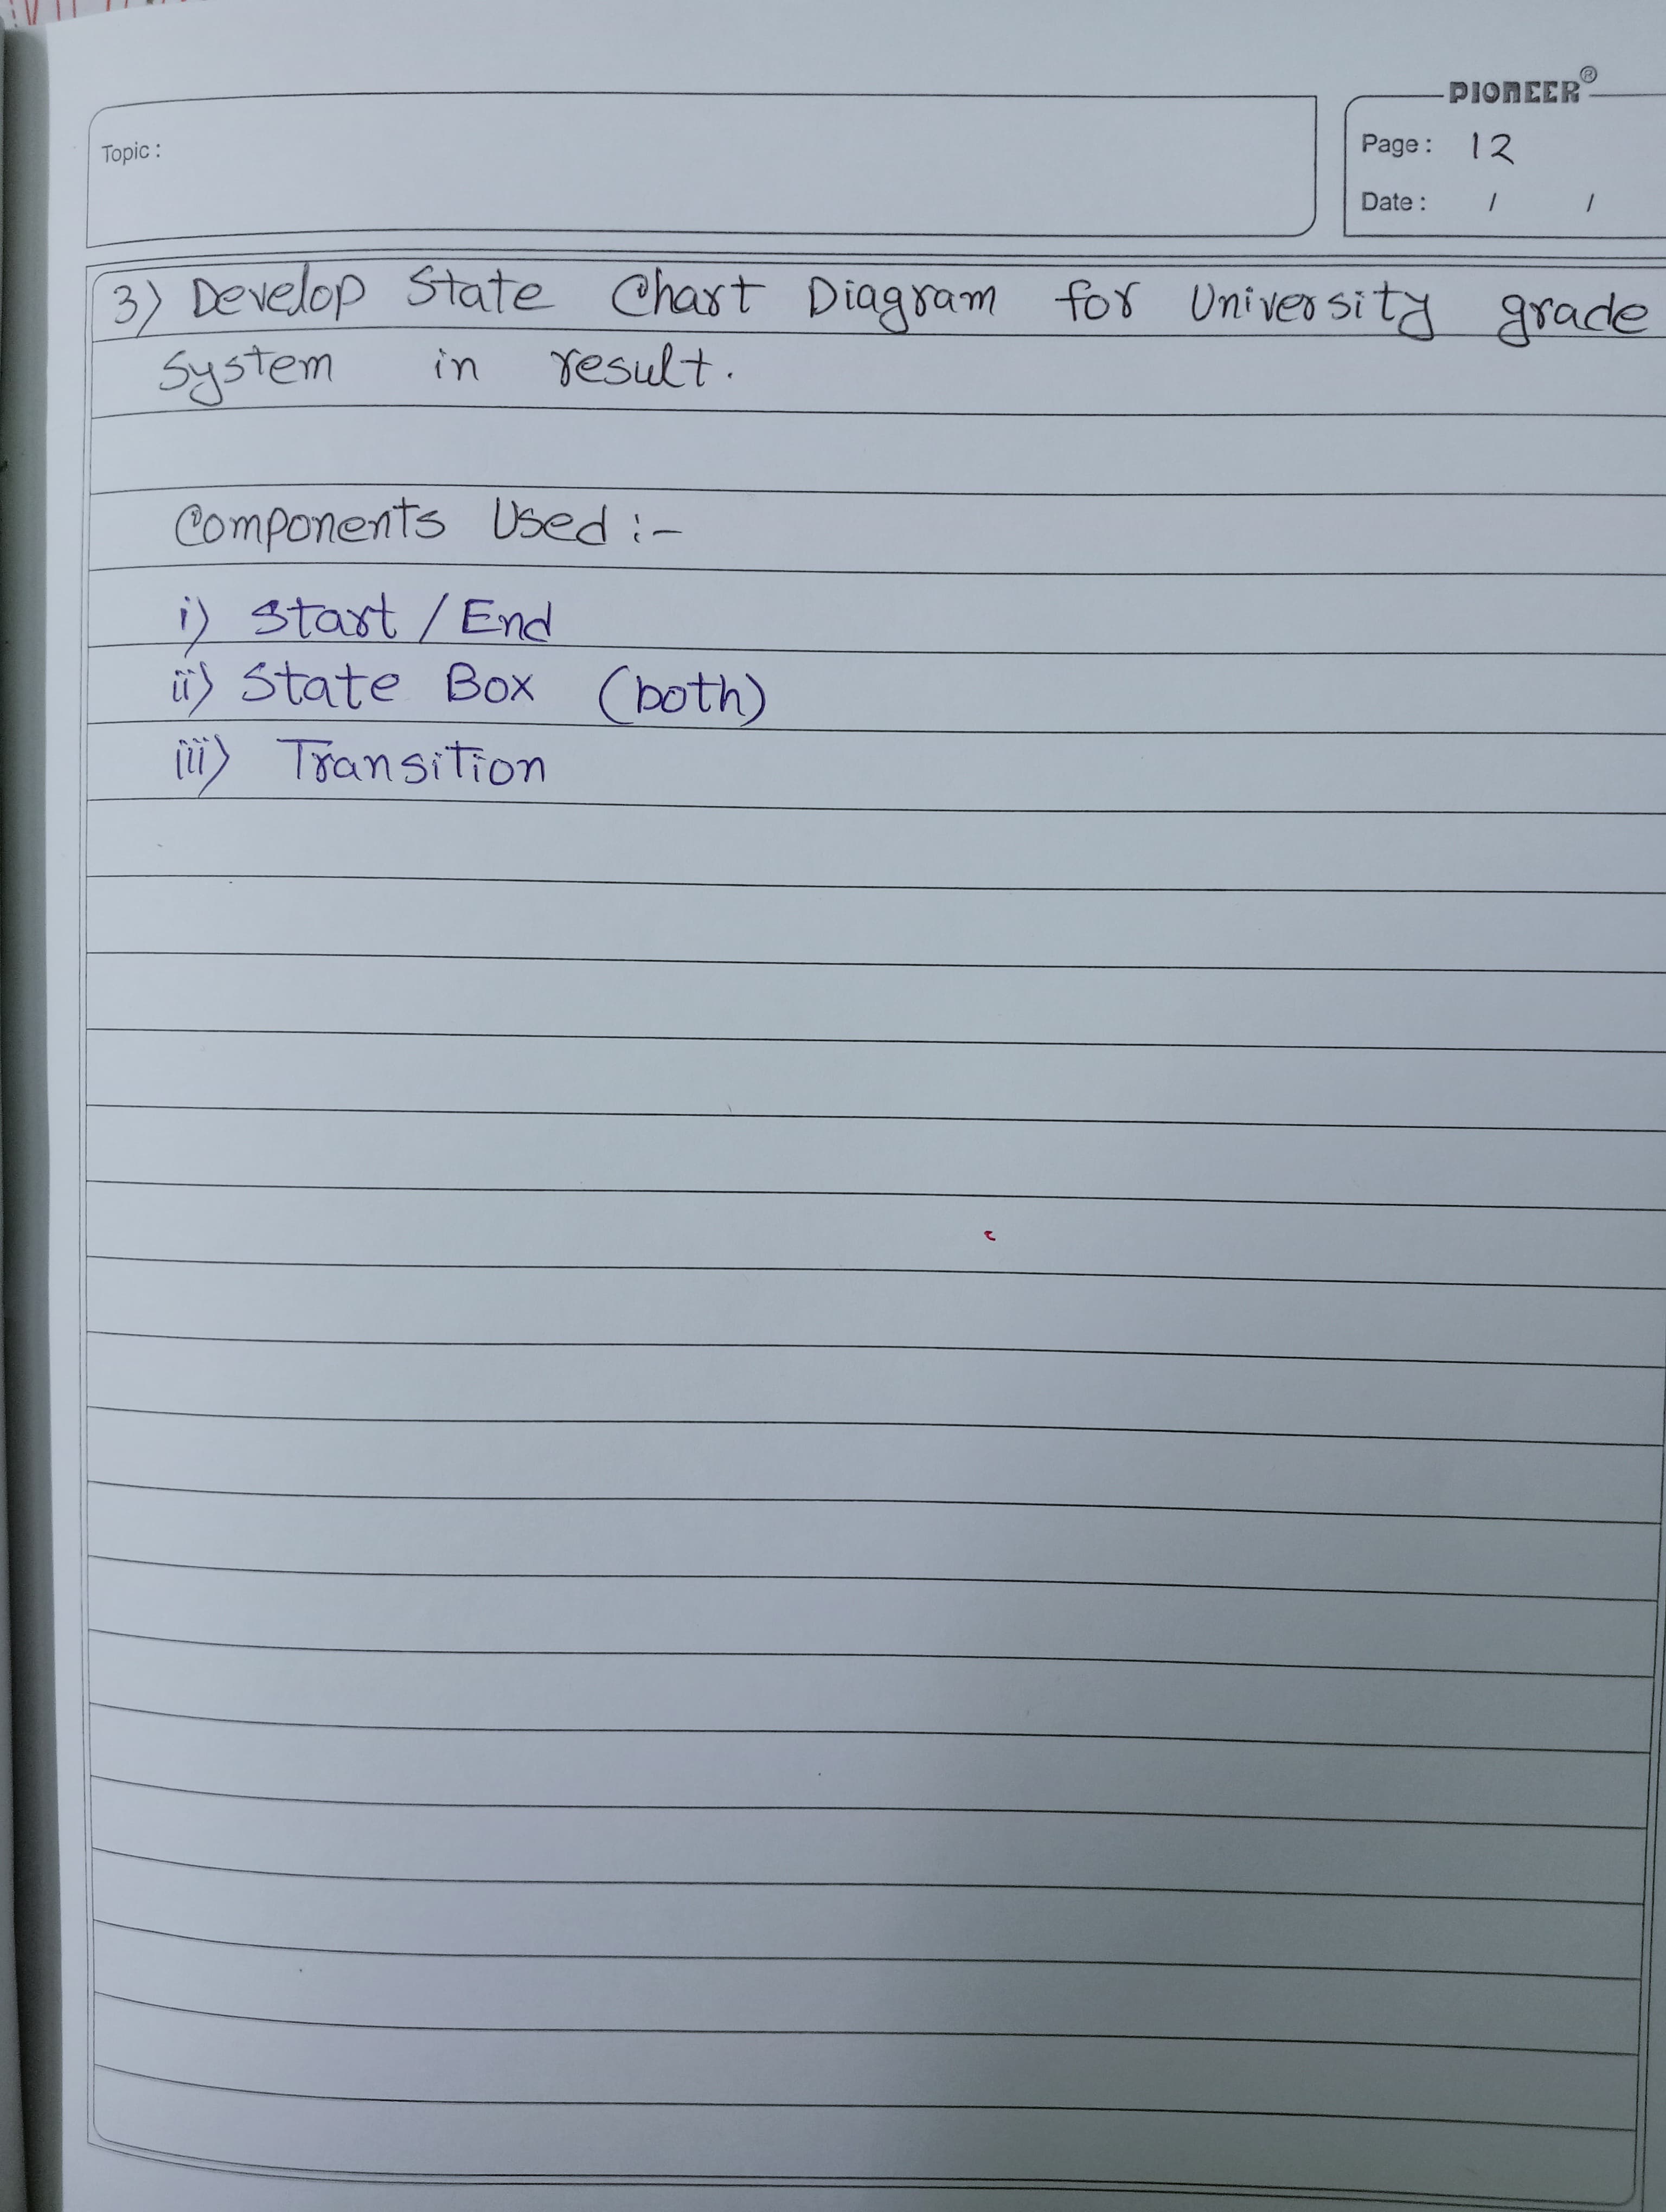 PIONEER®
Topic :
Page : 12
Date : / /
3) Develop State Chart Diagram for University grade
System in result.
Components Used :-
i) Start / End
ii) State Box (both)
iii) Transition